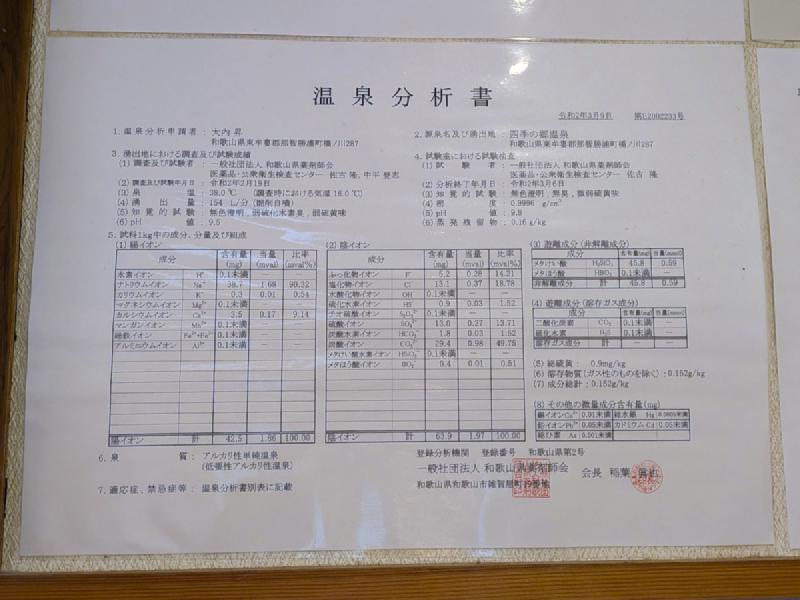 温泉分析書
令和2年3月9日 第E2002233号
1. 温泉分析申請者 : 大内 昇
和歌山県東牟婁郡那智勝浦町橋ノ川287
2. 源泉名及び湧出地 : 四季の郷温泉
和歌山県東牟婁郡那智勝浦町橋ノ川287
3. 湧出地における調査及び試験成績
(1) 調査及び試験者 : 一般社団法人 和歌山県薬剤師会
医薬品・公衆衛生検査センター 佐古 隆, 中平 登志
(2) 調査及び試験年月日 : 令和2年2月19日
(3) 泉 温 : 38.0℃ (調査時における気温 16.0℃)
(4) 湧 出 量 : 154 L/分 (掘削自噴)
(5) 知 覚 的 試 験 : 無色澄明, 弱硫化水素臭, 弱硫黄味
(6) pH 値 : 9.5
4. 試験室における試験検査
(1) 試 験 者 : 一般社団法人 和歌山県薬剤師会
医薬品・公衆衛生検査センター 佐古 隆
(2) 分析終了年月日 : 令和2年3月6日
(3) 知 覚 的 試 験 : 無色澄明, 無臭, 微弱硫黄味
(4) 密 度 : 0.9996 g/cm³
(5) pH 値 : 9.8
(6) 蒸 発 残 留 物 : 0.16 g/kg
5. 試料1kg中の成分、分量及び組成
(1) 陽イオン
成分 含有量(mg) 当量(mval) 比率(mval%)
水素イオン H⁺ 0.1未満 — —
ナトリウムイオン Na⁺ 38.7 1.68 90.32
カリウムイオン K⁺ 0.3 0.01 0.54
マグネシウムイオン Mg²⁺ 0.1未満 — —
カルシウムイオン Ca²⁺ 3.5 0.17 9.14
マンガンイオン Mn²⁺ 0.1未満 — —
総鉄イオン Fe²⁺+Fe³⁺ 0.1未満 — —
アルミニウムイオン Al³⁺ 0.1未満 — —
陽イオン 計 42.5 1.86 100.00
(2) 陰イオン
成分 含有量(mg) 当量(mval) 比率(mval%)
ふっ化物イオン F⁻ 5.2 0.28 14.21
塩化物イオン Cl⁻ 13.1 0.37 18.78
水酸化物イオン OH⁻ 0.1未満 — —
硫化水素イオン HS⁻ 0.9 0.03 1.52
チオ硫酸イオン S₂O₃²⁻ 0.1未満 — —
硫酸イオン SO₄²⁻ 13.0 0.27 13.71
炭酸水素イオン HCO₃⁻ 1.8 0.03 1.52
炭酸イオン CO₃²⁻ 29.4 0.98 49.75
メタけい酸水素イオン HSiO₃⁻ 0.1未満 — —
メタほう酸イオン BO₂⁻ 0.4 0.01 0.51
陰イオン 計 63.9 1.97 100.00
(3) 遊離成分 (非解離成分)
成分 含有量(mg) 当量(mmol)
メタけい酸 H₂SiO₃ 45.8 0.59
メタほう酸 HBO₂ 0.1未満 —
非解離成分 計 45.8 0.59
(4) 遊離成分 (溶存ガス成分)
成分 含有量(mg) 当量(mmol)
二酸化炭素 CO₂ 0.1未満 —
硫化水素 H₂S 0.1未満 —
溶存ガス成分 計 — —
(5) 総硫黄 : 0.9mg/kg
(6) 溶存物質(ガス性のものを除く) : 0.152g/kg
(7) 成分総計 : 0.152g/kg
(8) その他の微量成分含有量(mg)
銅イオンCu²⁺ 0.01未満 総水銀 Hg 0.0005未満
鉛イオンPb²⁺ 0.05未満 カドミウム Cd 0.05未満
総ひ素 As 0.001未満
6. 泉 質 : アルカリ性単純温泉
(低張性アルカリ性温泉)
7. 適応症、禁忌症等 : 温泉分析書別表に記載
登録分析機関 登録番号 和歌山県第2号
一般社団法人 和歌山県薬剤師会 会長 稲葉 眞也
和歌山県和歌山市雑賀屋町19番地